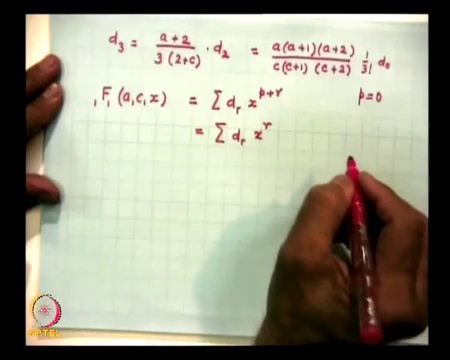 d₃ = a+2 / 3(2+c) · d₂ = a(a+1)(a+2) / c(c+1)(c+2) 1/3! d₀
₁F₁(a,c,x) = Σ dᵣ x^(p+r) p=0
= Σ dᵣ x^r
NPTEL